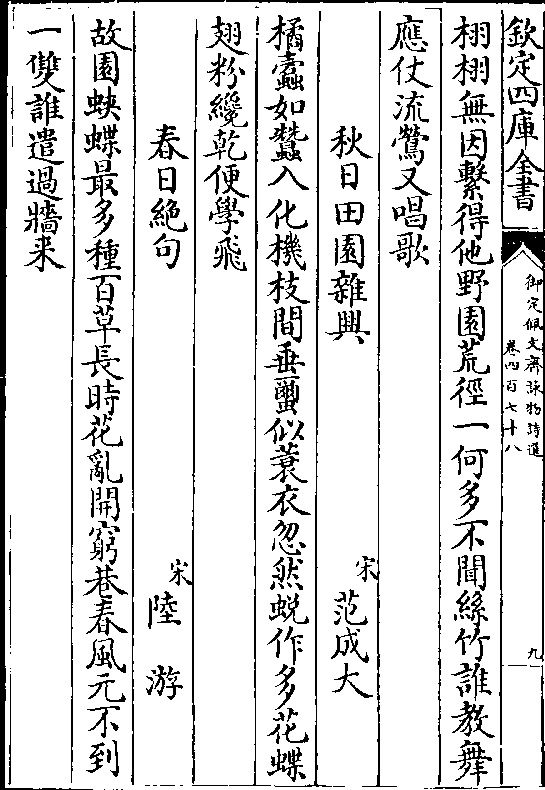 欽定四庫全書
御定佩文齋詠物詩選
卷四百七十八
九
栩栩無因繫得他野園荒徑一何多不聞絲竹誰教舞
應仗流鶯又唱歌
秋日田園雜興
宋 范成大
橘蠹如蠶入化機枝間垂蠒似蓑衣忽然蛻作多花蝶
翅粉纔乾便學飛
春日絶句
宋 陸游
故園蛺蝶最多種百草長時花亂開窮巷春風元不到
一雙誰遣過牆来